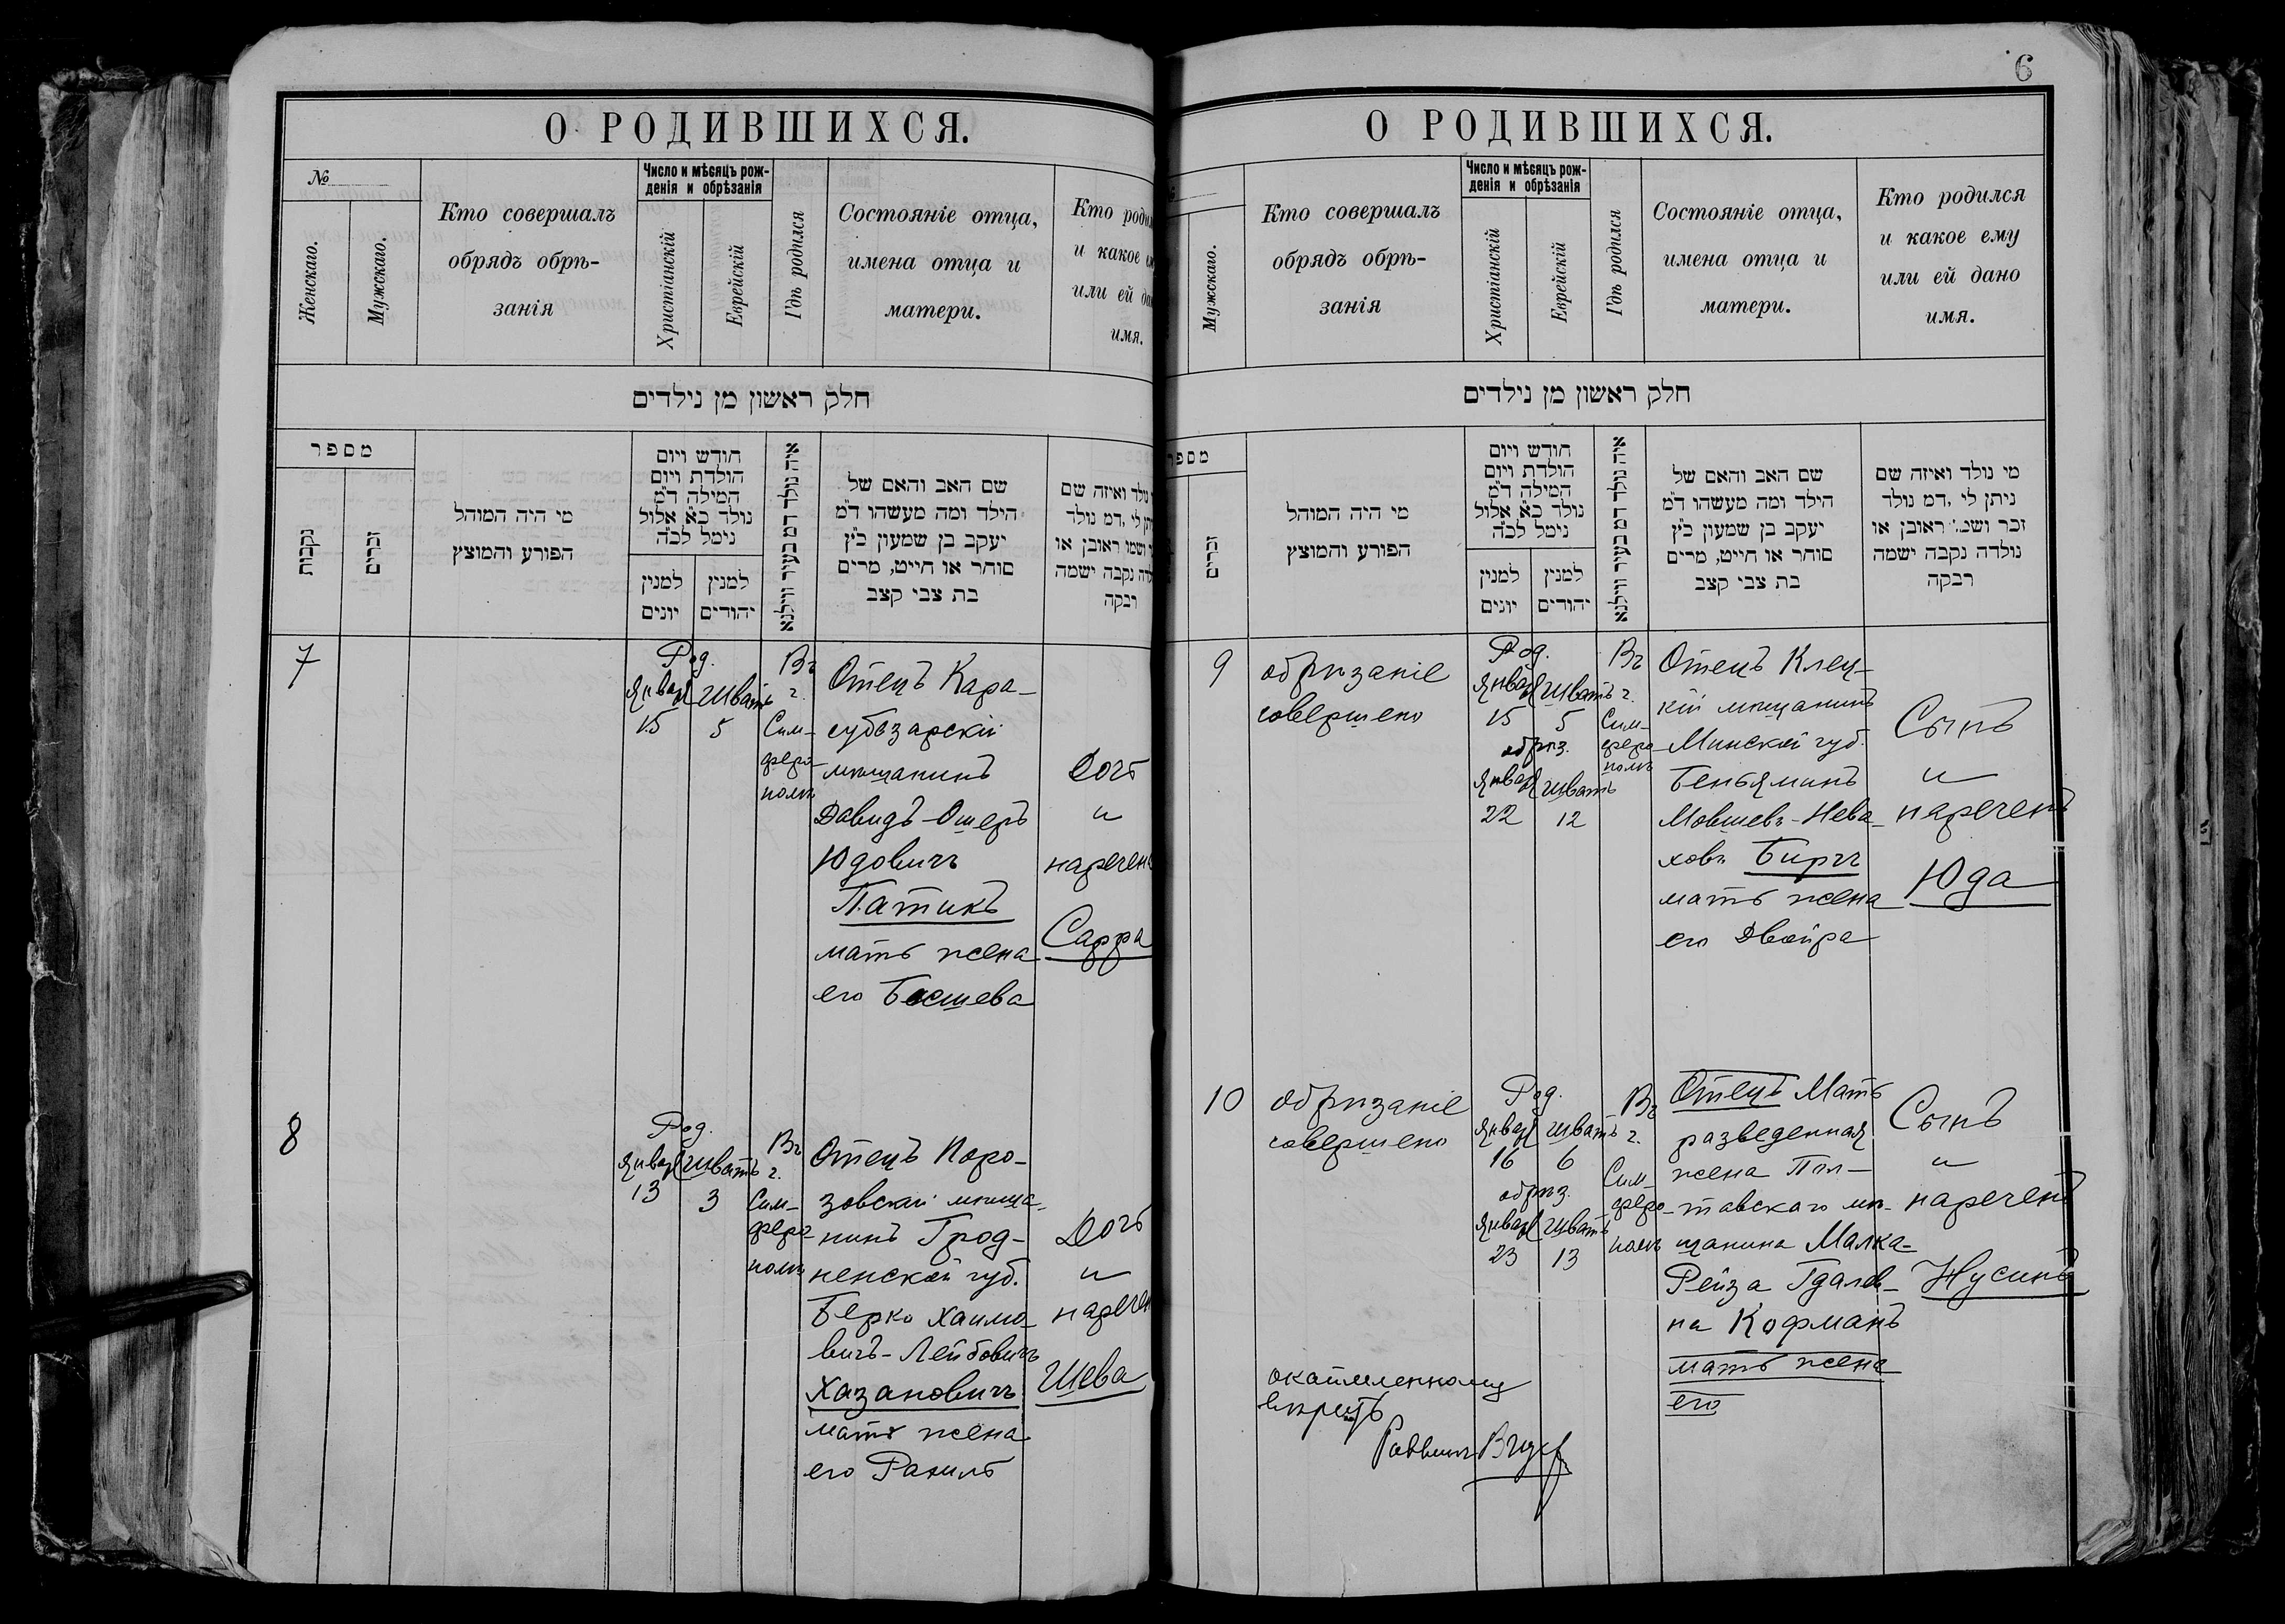 О РОДИВШИХСЯ.
№
Женскаго.
Мужскаго.
Кто совершалъ
обрядъ обрѣ-
занія
Число и мѣсяцъ рож-
денія и обрѣзанія
Христіанскій
Еврейскій
Гдѣ родился
Состояніе отца,
имена отца и
матери.
Кто роди
и какое
или ей да
имя.
חלק ראשון מן נילדים
מספר
נקבות
זכרים
מי היה המוהל
הפורע והמוצץ
חודש ויום
הולדת ויום
המילה ד״מ
נולד כ״א אלול
נימל לכ״ה
למנין
יונים
למנין
יהודים
איה נולד דמ בעיר ווילנא
שם האב והאם של
הילד ומה מעשהו ד״מ
יעקב בן שמעון כ״ץ
סוחר או חייט, מרים
בת צבי קצב
נולד ואיזה שם
יתן לי ,דמ נולד
ושמו ראובן או
נקבה ישמה
רבקה
7
Род.
Январ Шватъ
15 5
Въ
г.
Сим-
феро-
полѣ
Отецъ Кара-
субазарскій
мѣщанинъ
Давидъ-Ошеръ
Юдовичъ
Патикъ
мать жена
его Басшева
Дочь
и
наречен
Сарра
8
Род.
Январ Шватъ
13 3
Въ
г.
Сим-
феро-
полѣ
Отецъ Поро-
зовскій мѣща-
нинъ Грод-
ненской губ.
Берко Хаимо-
вичъ-Лейбовичъ
Хазановичъ
мать жена
его Рахиль
Дочь
и
наречен
Шева
6
О РОДИВШИХСЯ.
Мужскаго.
Кто совершалъ
обрядъ обрѣ-
занія
Число и мѣсяцъ рож-
денія и обрѣзанія
Христіанскій
Еврейскій
Гдѣ родился
Состояніе отца,
имена отца и
матери.
Кто родился
и какое ему
или ей дано
имя.
חלק ראשון מן נילדים
מספר
זכרים
מי היה המוהל
הפורע והמוצץ
חודש ויום
הולדת ויום
המילה ד״מ
נולד כ״א אלול
נימל לכ״ה
למנין
יונים
למנין
יהודים
איה נולד דמ בעיר ווילנא
שם האב והאם של
הילד ומה מעשהו ד״מ
יעקב בן שמעון כ״ץ
סוחר או חייט, מרים
בת צבי קצב
מי נולד ואיזה שם
ניתן לי ,דמ נולד
זכר ושמ: ראובן או
נולדה נקבה ישמה
רבקה
9
обрѣзаніе
совершено
Род.
Январ Шватъ
15 5
обрѣз.
Январ Шватъ
22 12
Въ
г.
Сим-
феро-
полѣ
Отецъ Клец-
кій мѣщанинъ
Минской губ.
Беньяминъ
Мовшевъ-Нева-
ховъ Биргъ
мать жена
его Двейра
Сынъ
и
нареченъ
Юда
10
обрѣзаніе
совершено
Род.
Январ Шватъ
16 6
обрѣз.
Январ Шватъ
23 13
Въ
г.
Сим-
феро-
полѣ
Отецъ Мать
разведенная
жена Пол-
тавскаго мѣ-
щанина Малка-
Рейза Гдалев-
на Кофманъ
мать жена
его
Сынъ
и
нареченъ
Нусинъ
вѣрить
Раввинъ